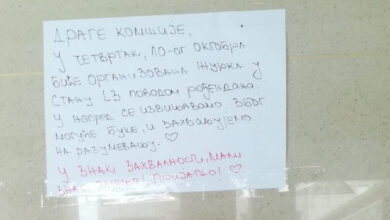 ДРАГЕ КОМШИЈЕ,
У ЧЕТВРТАК, 10-ОГ ОКТОБРА
БИЋЕ ОРГАНИЗОВАНА ЖУРКА У
СТАНУ L3 ПОВОДОМ РОЂЕНДАНА.
У НАПРЕД СЕ ИЗВИЊАВАМО ЗБОГ
МОГУЋЕ БУКЕ, И ЗАХВАЉУЈЕМО
НА РАЗУМЕВАЊУ. ♡
У ЗНАК ЗАХВАЛНОСТИ, МАЛИ
ЗНАК ПАЖЊЕ! ПРИЈАТНО! ♡